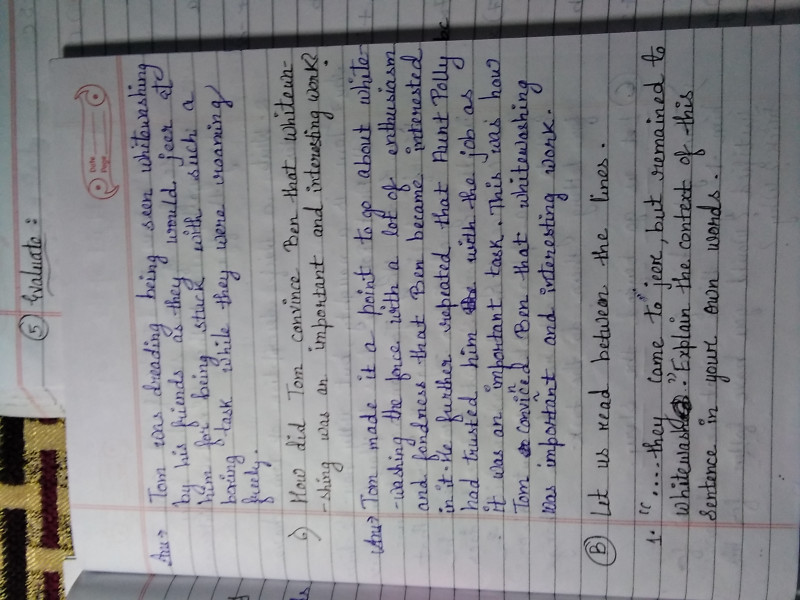 5 Evaluate :
Date
Page
Ans→ Tom was dreading being seen whitewashing
by his friends as they would jeer at
him for being stuck with such a
boring task while they were roaming
freely.
6) How did Tom convince Ben that whitewa-
-shing was an important and interesting work?
Ans→ Tom made it a point to go about white-
-washing the fence with a lot of enthusiasm
and fondness that Ben became interested
in it. He further repeated that Aunt Polly
had trusted him with the job as
it was an important task. This was how
Tom convinced Ben that whitewashing
was important and interesting work.
B Let us read between the lines.
1. "....they came to jeer, but remained to
whitewash". Explain the context of this
sentence in your own words.